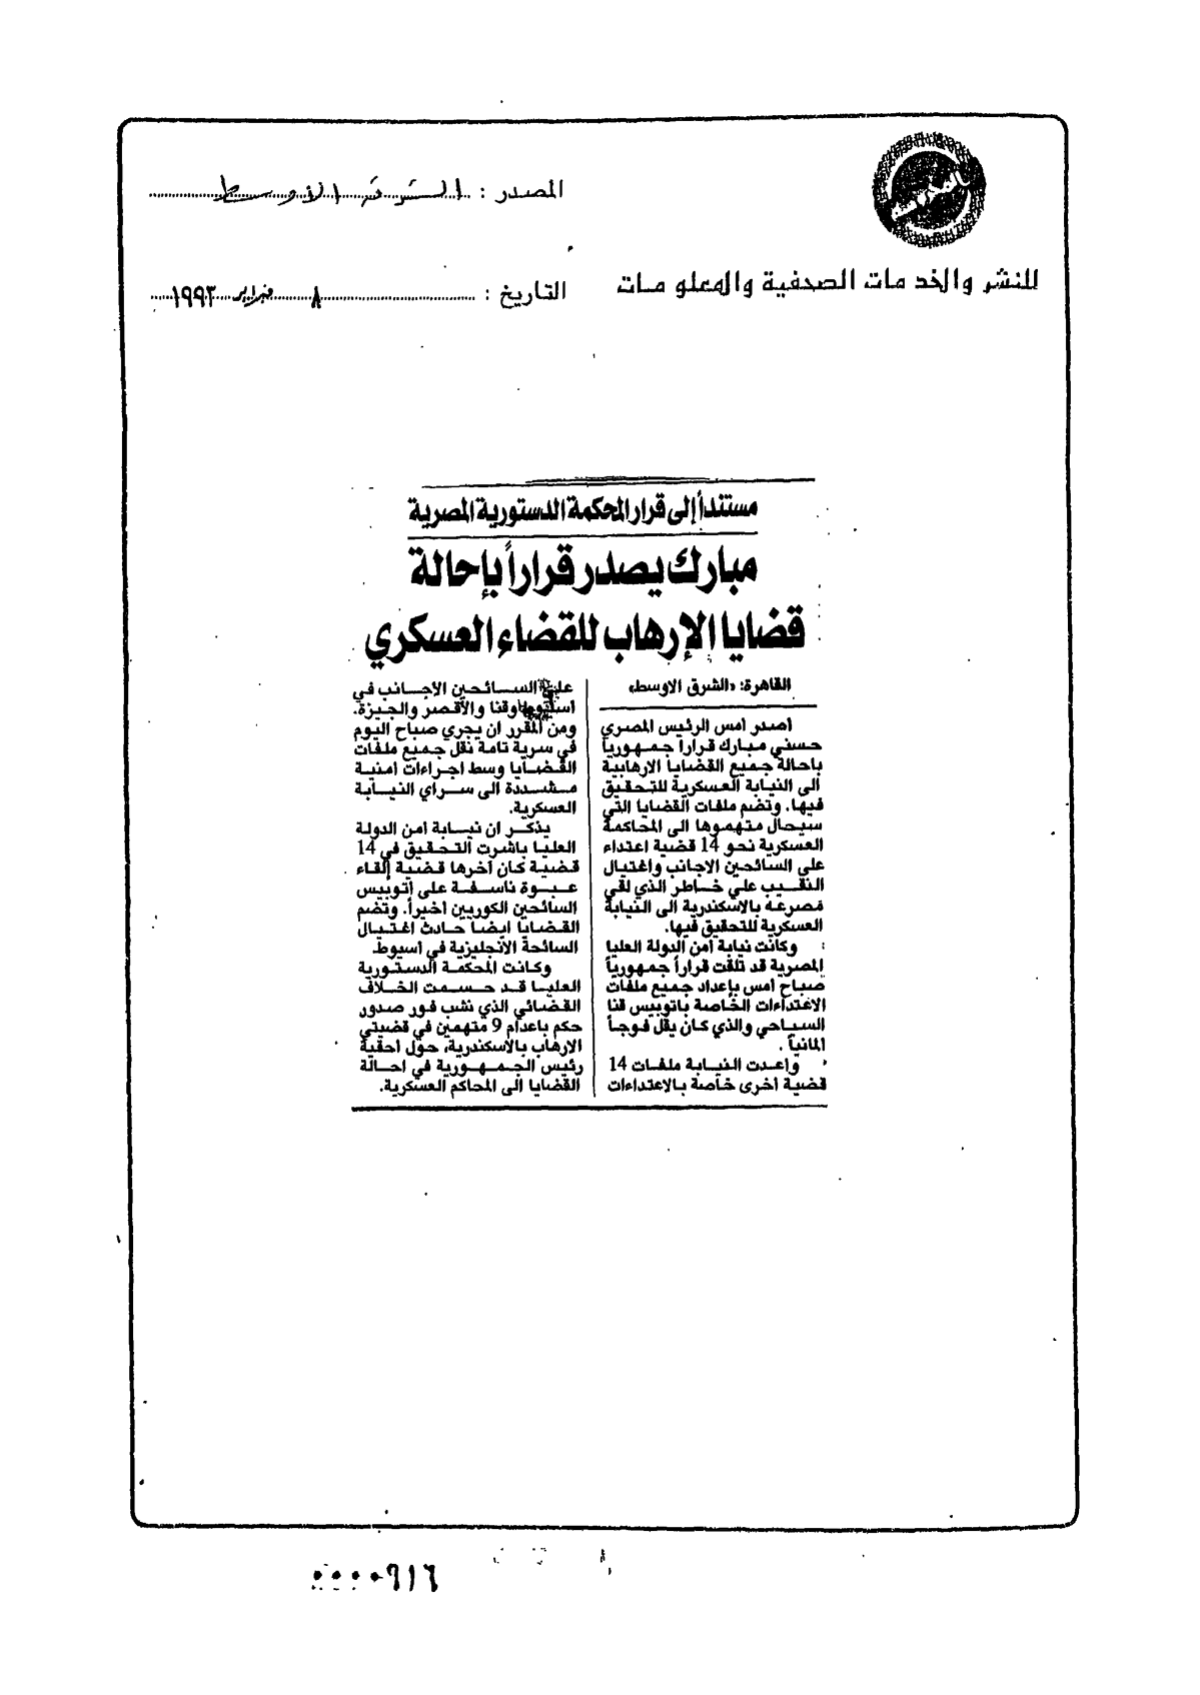 المصدر : الشرق الاوسط
للنشر والخدمات الصحفية والمعلومات
التاريخ : ٨ فبراير ١٩٩٣
مستنداً إلى قرار المحكمة الدستورية المصرية
مبارك يصدر قراراً بإحالة
قضايا الإرهاب للقضاء العسكري
القاهرة: «الشرق الاوسط»
اصدر امس الرئيس المصري
حسني مبارك قراراً جمهورياً
باحالة جميع القضايا الارهابية
الى النيابة العسكرية للتحقيق
فيها. وتضم ملفات القضايا التي
سيحال متهموها الى المحاكمة
العسكرية نحو 14 قضية اعتداء
على السائحين الاجانب واغتيال
النقيب علي خاطر الذي لقي
مصرعه بالاسكندرية الى النيابة
العسكرية للتحقيق فيها.
وكانت نيابة امن الدولة العليا
المصرية قد تلقت قراراً جمهورياً
صباح امس بإعداد جميع ملفات
الاعتداءات الخاصة باتوبيس قنا
السياحي والذي كان يقل فوجاً
المانياً.
واعدت النيابة ملفات 14
قضية اخرى خاصة بالاعتداءات
على السائحين الاجانب في
اسيوط وقنا والأقصر والجيزة.
ومن المقرر ان يجري صباح اليوم
في سرية تامة نقل جميع ملفات
القضايا وسط اجراءات امنية
مشددة الى سراي النيابة
العسكرية.
يذكر ان نيابة امن الدولة
العليا باشرت التحقيق في 14
قضية كان اخرها قضية إلقاء
عبوة ناسفة على اتوبيس
السائحين الكوريين اخيراً. وتضم
القضايا ايضا حادث اغتيال
السائحة الانجليزية في اسيوط
وكانت المحكمة الدستورية
العليا قد حسمت الخلاف
القضائي الذي نشب فور صدور
حكم باعدام 9 متهمين في قضيتي
الارهاب بالاسكندرية، حول احقية
رئيس الجمهورية في احالة
القضايا الى المحاكم العسكرية.
٠٠٠٠٩١٦